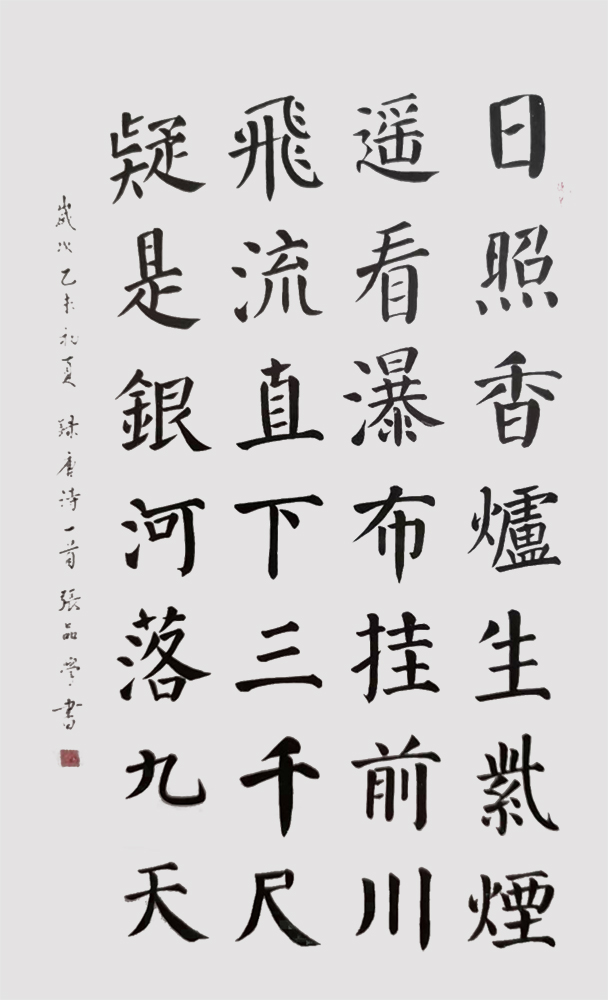 日照香爐生紫煙
遥看瀑布挂前川
飛流直下三千尺
疑是銀河落九天
歲次乙未初夏 錄唐詩一首 張品學書